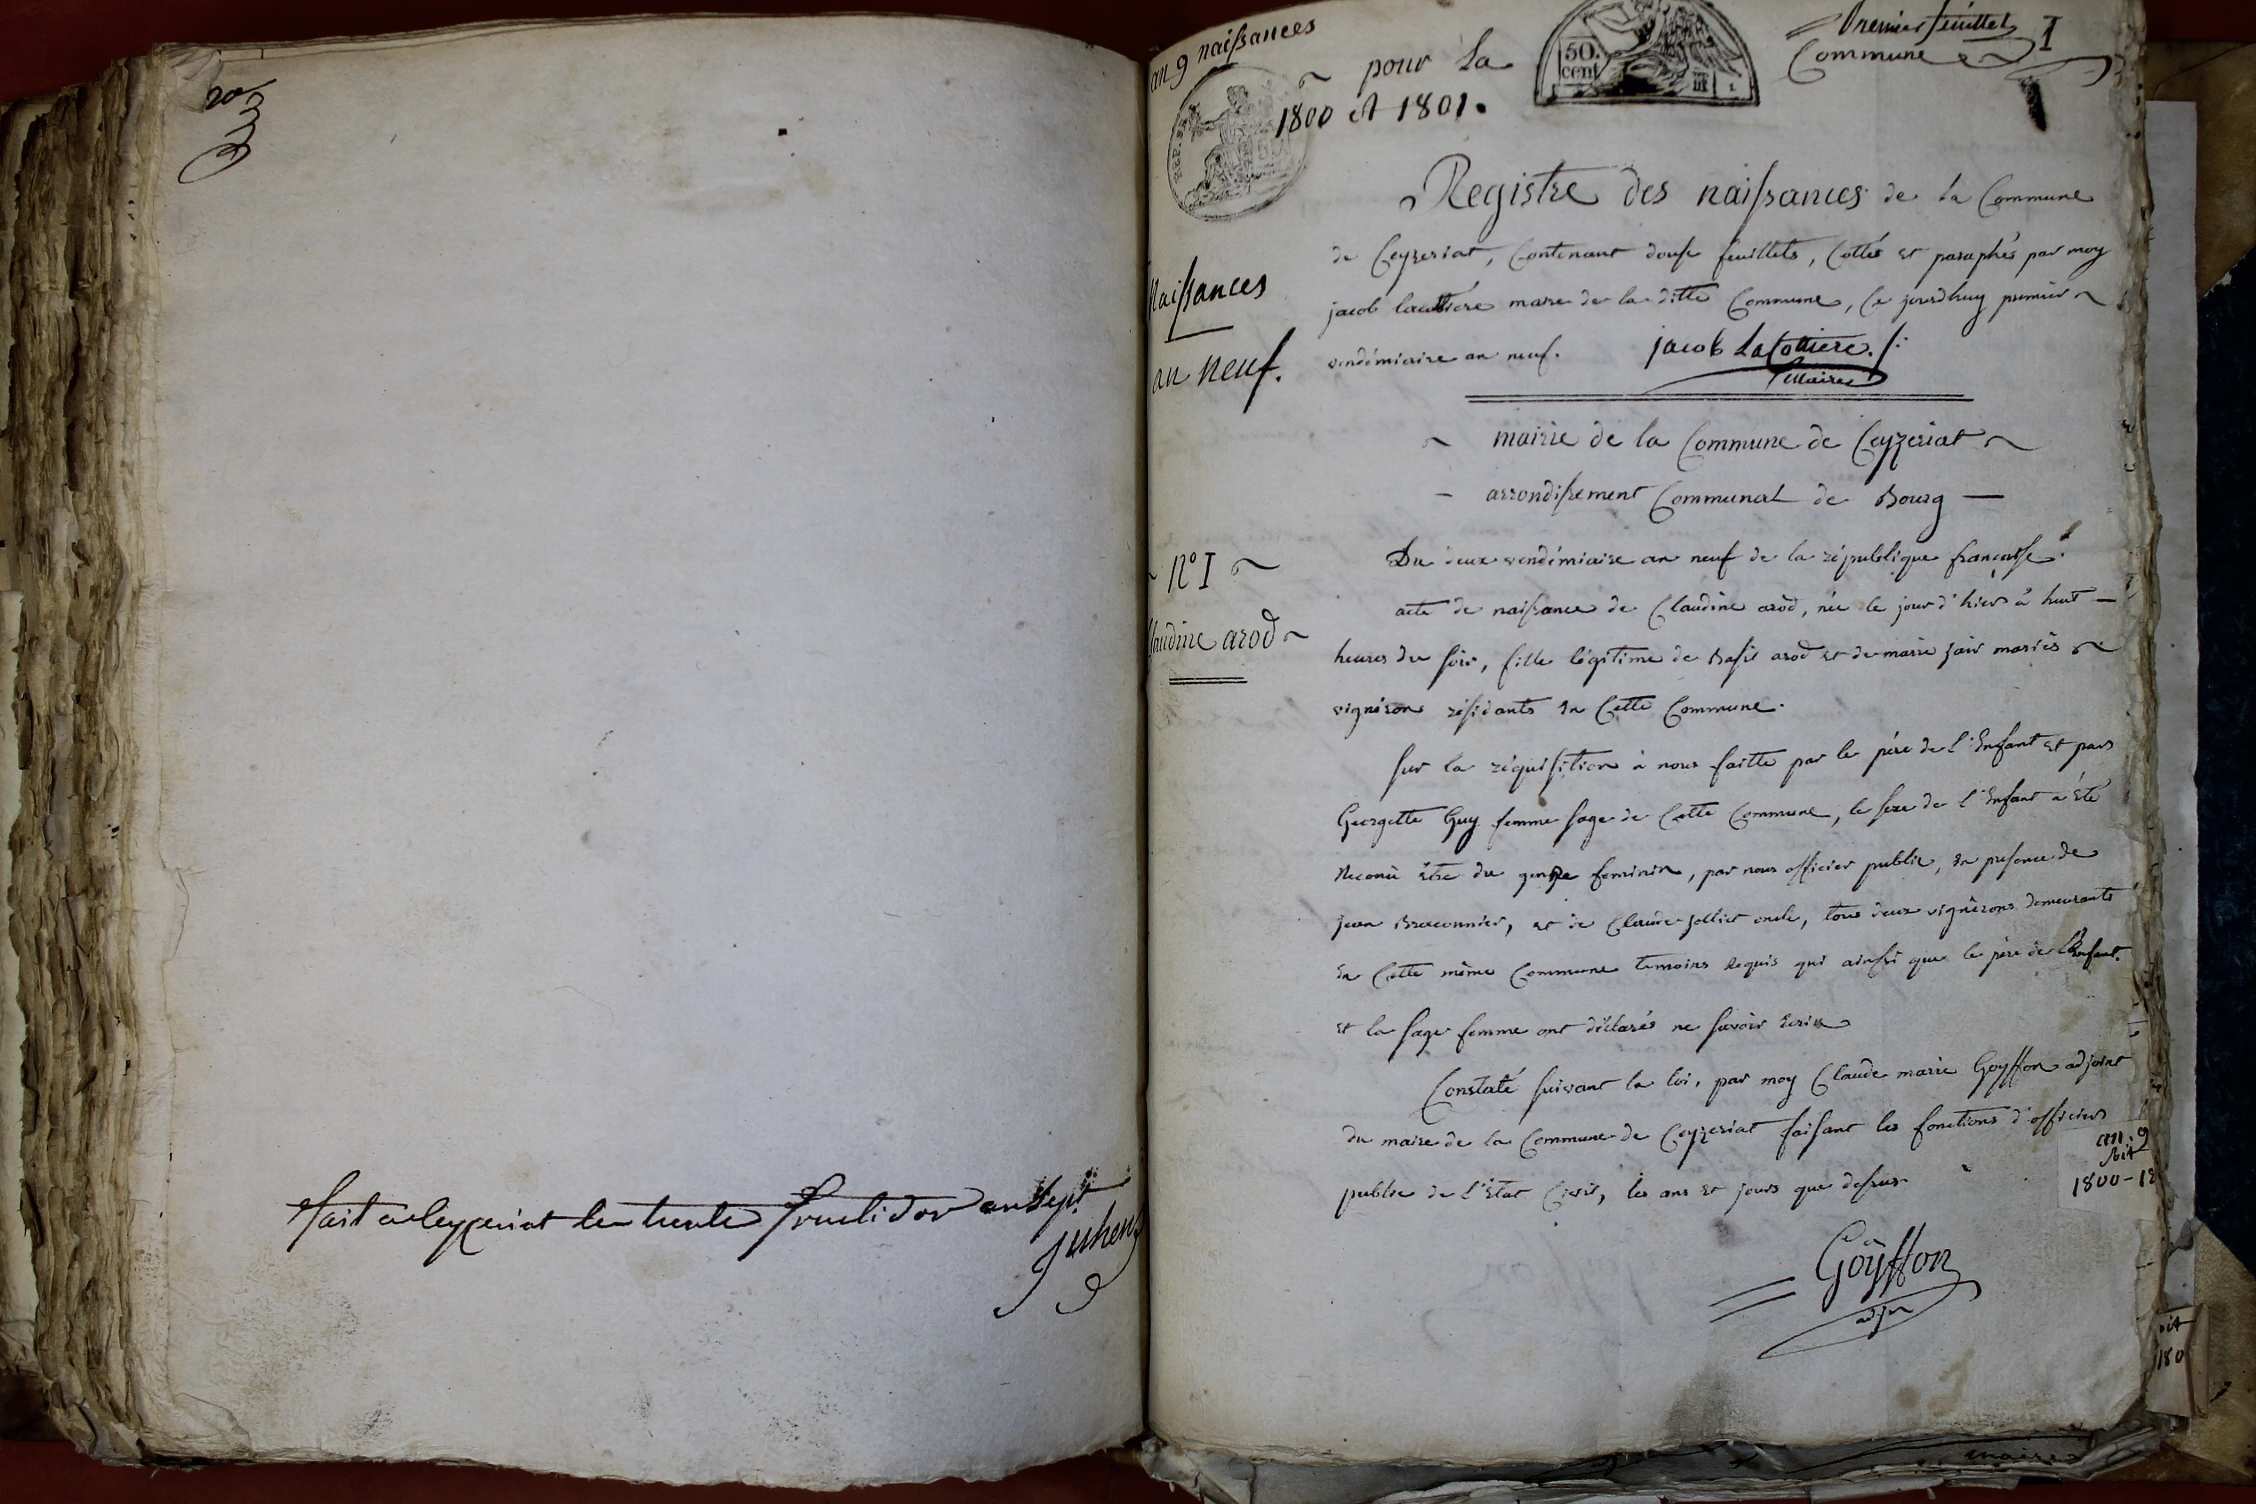 20
fait a ceyzeriat le trente fructidor an Sept
an 9 naissances
pour la Commune
1800 et 1801.
50.
cent
REP.
premier feuillet
I
Registre des naissances de la Commune
de Ceyzeriat, Contenant douse feuillets, Cottés et paraphés par moy
jacob lacottiere maire de la ditte Commune, Ce jourdhuy premier
vendémiaire an neuf. jacob Lacottiere
Maire
Naissances
an neuf.
mairie de la Commune de Ceyzeriat
arrondissement Communal de Bourg
N° I
Claudine arod
Du deux vendémiaire an neuf de la république française.
acte de naissance de Claudine arod, née le jour d'hier à huit
heures du soir, fille légitime de Basil arod et de marie jair mariés
vignerons résidants en Cette Commune.
sur la réquisition à nous faitte par le père de l'Enfant et par
Georgette Guy femme sage de Cette Commune, le sexe de l'Enfant à été
Reconü être du genre feminin, par nous officier public, en presence de
jean Braconnier, et de Claude jollict oncle, tous deux vignerons demeurants
En Cette même Commune temoins Requis qui ainssi que le père de l'Enfant
et la sage femme ont déclarés ne savoir Ecrire
Constaté suivant la loi, par moy Claude marie Goyffon adjoint
du maire de la Commune de Ceyzeriat faisant les fonctions d'officier
public de l'Etat Civil, les ans et jours que dessus
Goÿffon
adjt
an. 9
1800-18
180
maire